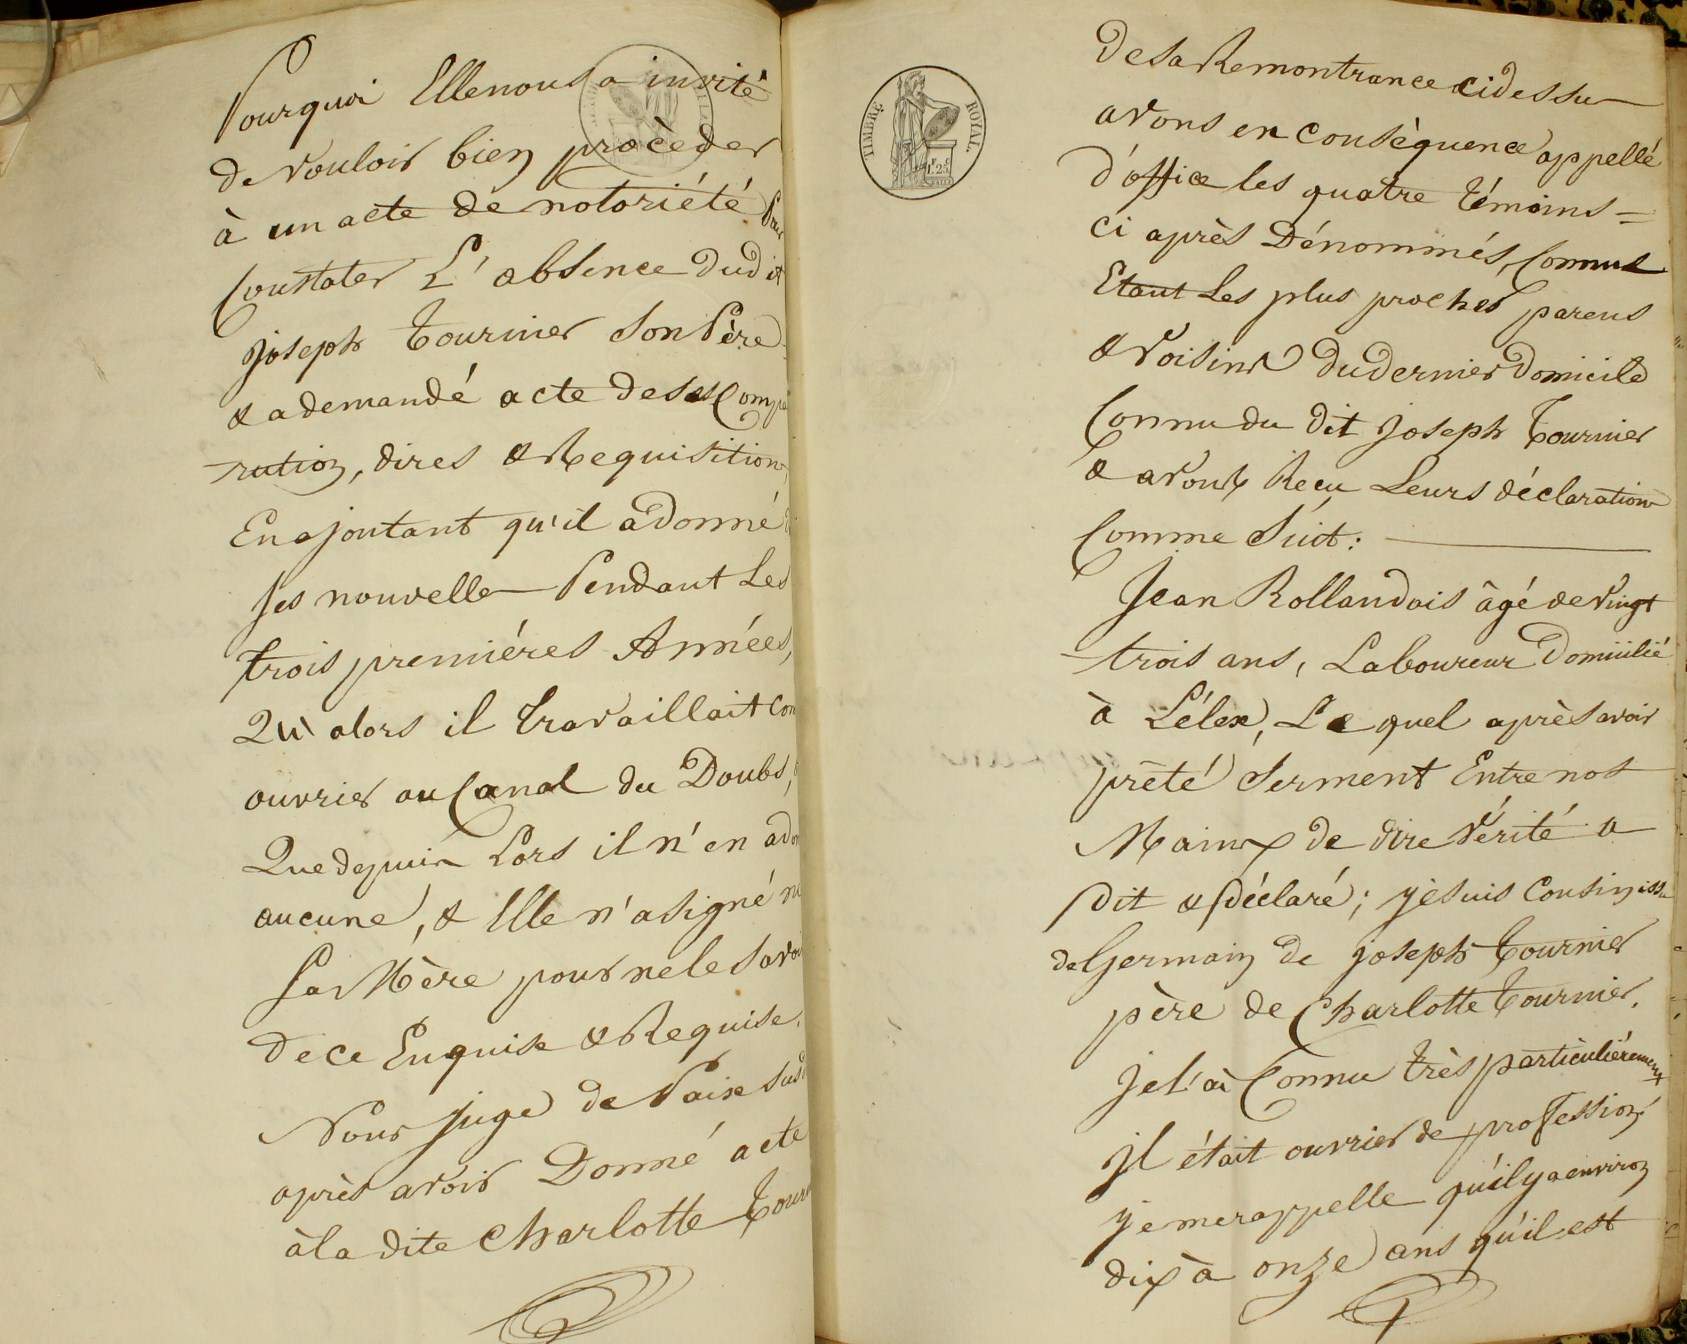 Pourquoi Elle nous a invité
de vouloir bien procèder
à un acte de notoriété Pour
Constater L'absence dudit
joseph Tournier son Père
& a demandé acte de ses Compa
rution, dires & Requisition,
En ajoutant qu'il a donné
ses nouvelle Pendant Les
trois premiéres Années,
Qu'alors il travaillait Com
ouvrier au Canal du Doubs,
Que depuis Lors il n'en a don
aucune, & Elle n'a signé ni
sa Mère pour ne le savoi
de ce Enquise & Requise.
Nous juge de Paix susd
après avoir Donné acte
à la dite Charlotte Tourn
TIMBRE ROYAL
1.F 25.C
De sa Remontrance cidessus
avons en conséquence appellé
d'office les quatre témoins =
ci après Dénommés, Connus
Etant Les plus proches parens
& voisins du dernier Domicile
Connu du dit joseph Tournier
& avons Reçu Leurs déclaration
Comme Suit :
Jean Rollandois âgé de vingt
trois ans, Laboureur Domicilié
à Lélex, Le quel après avoir
prêté serment Entre nos
Mains de dire vérité a
dit & déclaré ; je suis Cousin issu
de Germain de joseph Tournier
père de Charlotte Tournier,
je l'ai Connu très particuliérement
jl était ouvrier de profession,
je me rappelle qu'il y a environ
dix à onze ans qu'il est